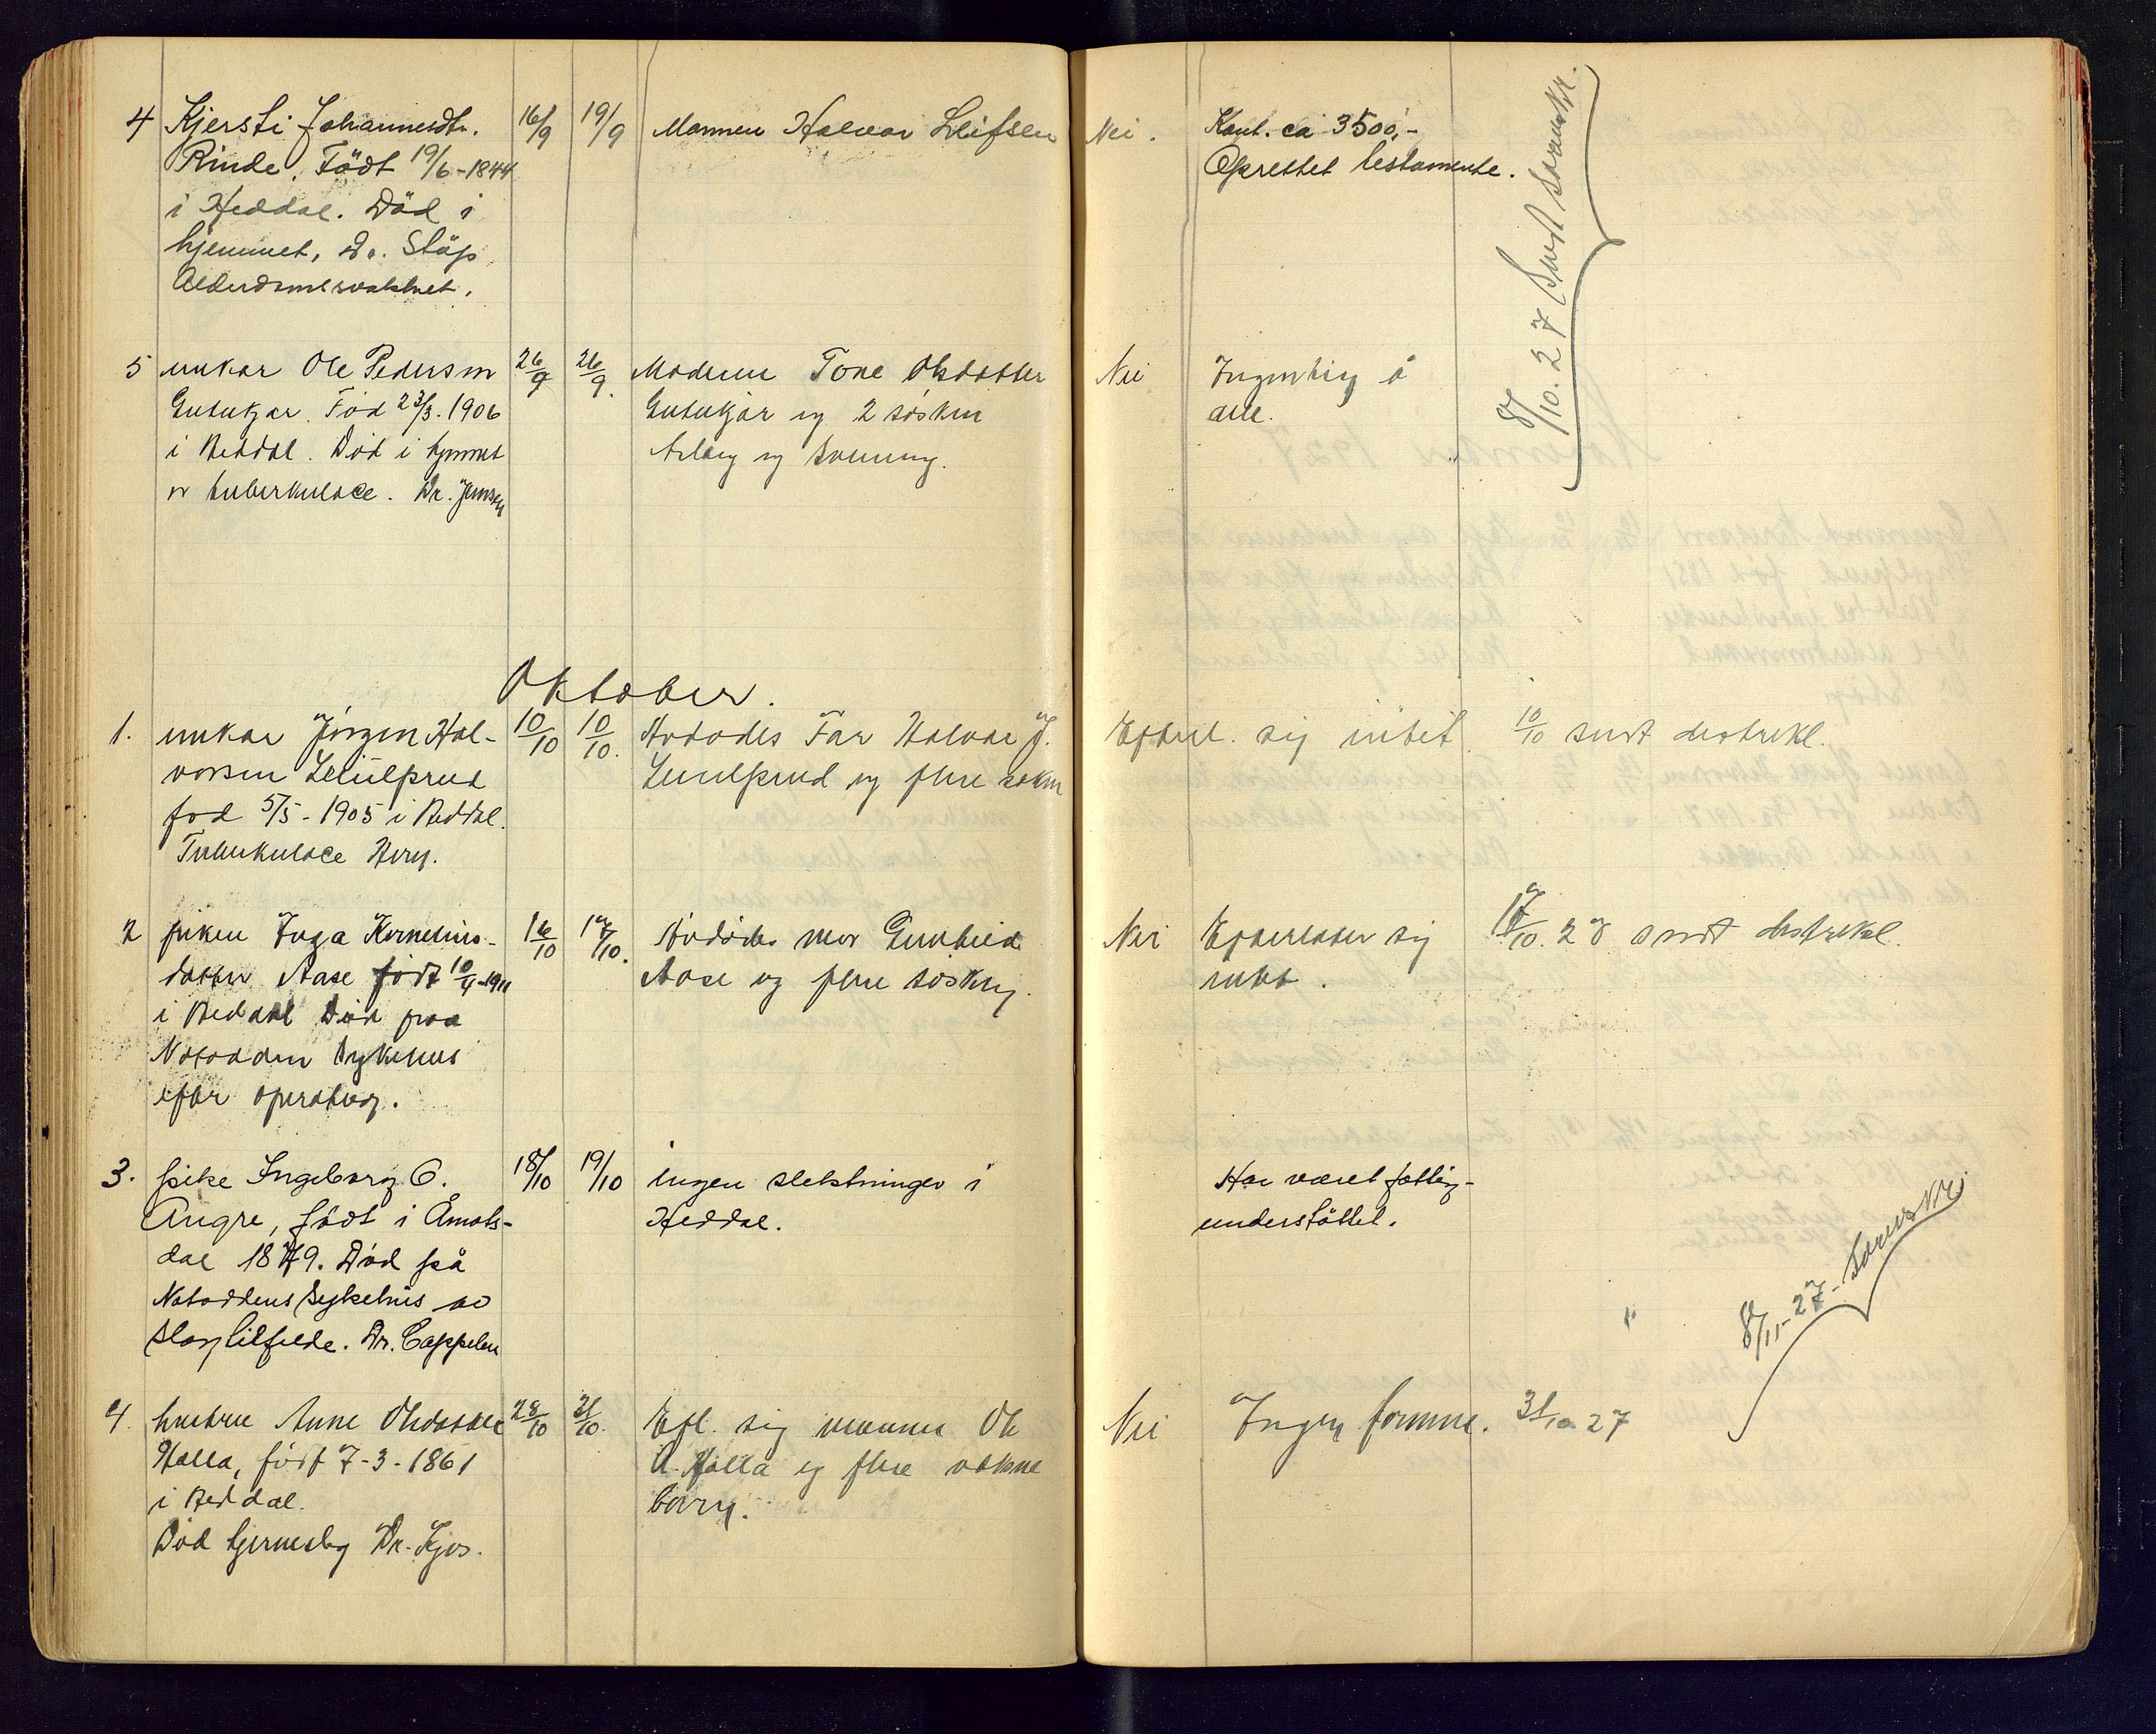 4 Kjersti Johannesdtr. 16/9 19/9 Mannen Halvor Leifsen Nei. Kont. ca 3500,-
Rinde. Född 19/6-1844 Oprettet testamente.
i Heddal. Död i
hjemmet, Dr. Støp
Alderdomssvakhet.
8/10. 27 sendt sorenskr.
5 unkar Ole Pedersen 26/9 26/9. Moderen Tone Olsdatter Nei Ingenting å
Gutukjær. Fød 23/3. 1906 Gutukjær og 2 søsken arve.
i Heddal. Död i hjemmet Aslaug og
av tuberkulose. Dr. Jensen
Oktober.
1. unkar Jørgen Hal- 10/10 10/10. Avdødes Far Halvor J. Efterl. sig intet 10/10 sendt skr
vorsen og flere søken
fød 5/5 - 1905 i Heddal.
Tuberkulose
2 piken Inga Kornelius- 16/10 17/10. Avdødes mor Gunhild Nei Efterlater sig 17/10. 27 sendt
datter Aase født 10/4-1911 Aase og flere søsken. intet.
i Heddal Död paa
Notodden sykehus
efter operation.
3. pike Ingeborg O. 18/10 19/10 ingen slektninger i Har været fattig-
Angre, födt i Åmots- Heddal. understöttet.
dal 1879. Död på
Notoddens sykehus av
slagtilfelde. Dr. Cappelen
8/11-27- Sorenskr.
4. hustru Anne Olsdatter 28/10 31/10. Eft. sig mannen Ole Nei Ingen formue. 31/10 27
Halla, født 7-3-1861 A. Halla og flere voksne
i Heddal. barn.
Död hjerneslag Dr.